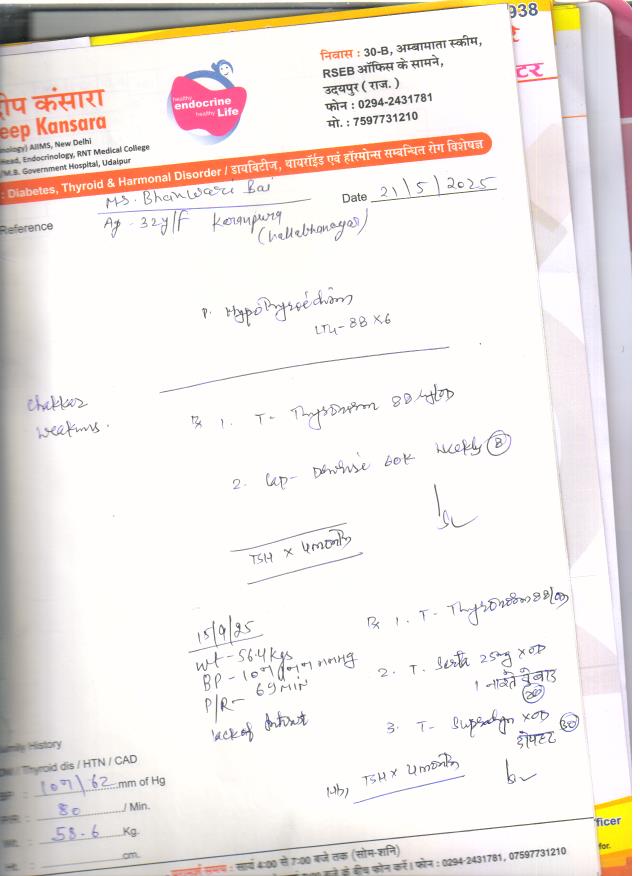 938
निवास : 30-B, अम्बामाता स्कीम,
RSEB ऑफिस के सामने,
उदयपुर ( राज. )
फोन : 0294-2431781
मो. : 7597731210
टर
ीप कंसारा
eep Kansara
nology) AIIMS, New Delhi
Head, Endocrinology, RNT Medical College
/M.B. Government Hospital, Udaipur
healthy
endocrine
healthy Life
: Diabetes, Thyroid & Harmonal Disorder / डायबिटीज, थायरॉईड एवं हॉरमोन्स सम्बन्धित रोग विशेषज्ञ
Ms. Bhanwari Bai
Date 21/5/2025
Reference
32y/F Karanpura
(Vallabhnagar)
Hypothyroidism
LT4-88 X6
Chakkar
weakness.
Rx 1. T- Thyronorm 88
2. Cap- 60K weekly 8
TSH X 4 months
15/9/25
Wt-56.4kgs
BP - 109
P/R- 69 min
lack of
Rx 1. T- Thyronorm 88
2. T. 25mg XOD
1 नाश्ते के बाद
3. T- XOD
दोपहर
Hb, TSH X 4 months
amily History
DM / Thyroid dis / HTN / CAD
BP : 109/62 mm of Hg
P/R : 80 / Min.
Wt. : 58.6 Kg.
Ht. : cm.
समय : सायं 4:00 से 7:00 बजे तक (सोम-शनि)
बजे के बीच फोन करें। फोन : 0294-2431781, 07597731210
fficer
for.